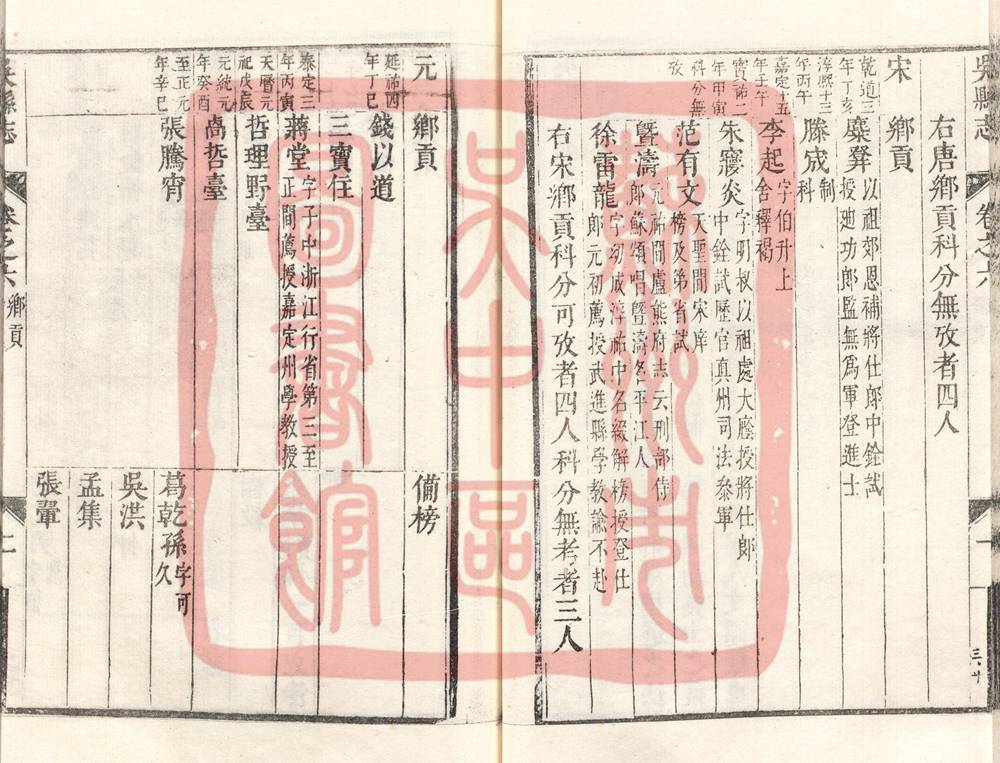 吳縣志 卷之六
右唐鄉貢科分無攷者四人
宋
鄉貢
乾道三年丁亥 麋昪 以祖郊恩補將仕郎中銓試授迪功郎監無為軍登進士
淳熙十三年丙午 滕宬 制科
嘉定十五年壬午 李起 字伯升上舍釋褐
寶祐二年甲寅 朱㝱炎 字明叔以祖處大廕授將仕郎中銓試歷官真州司法叅軍
科分無攷 范有文 天聖間宋庠榜及第省試
暨濤 元祐間盧熊府志云刑部侍郎蘇頌唱暨濤名平江人
徐雷龍 字幼成淳祐中名綴解榜授登仕郎元初薦授武進縣學教諭不赴
右宋鄉貢科分可攷者四人科分無考者三人
元
鄉貢
備榜
延祐四年丁巳 錢以道
三寶住
泰定三年丙寅 蔣堂 字子中浙江行省第三至正間薦授嘉定州學教授
天曆元祀戊辰 哲理野臺
元統元年癸酉 卨哲臺
至正元年辛巳 張騰霄
葛乾孫 字可久
吳洪
孟集
張翬
吳縣志 卷之六 鄉貢 二